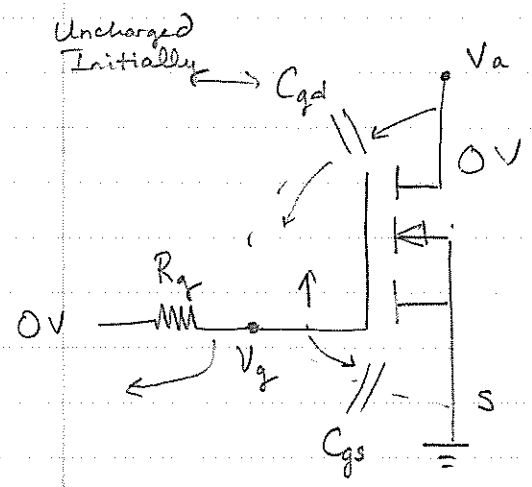 Uncharged
Initially
Cgd
Va
0V
Rg
0V
Vg
S
Cgs